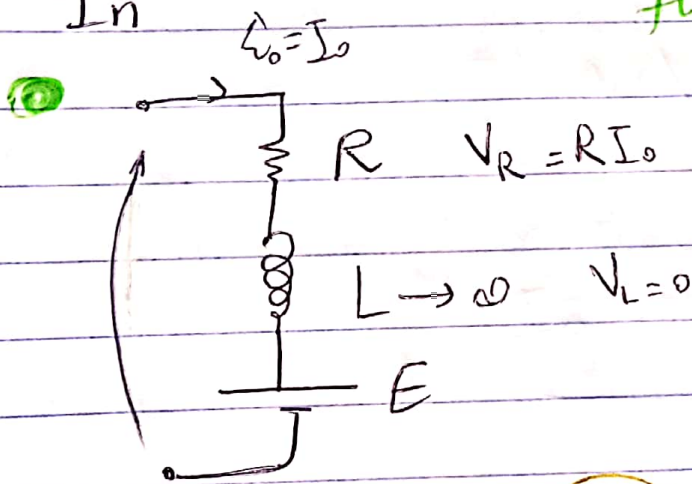 In
i₀=I₀
R V_R = RI₀
L → ∞ V_L = 0
E